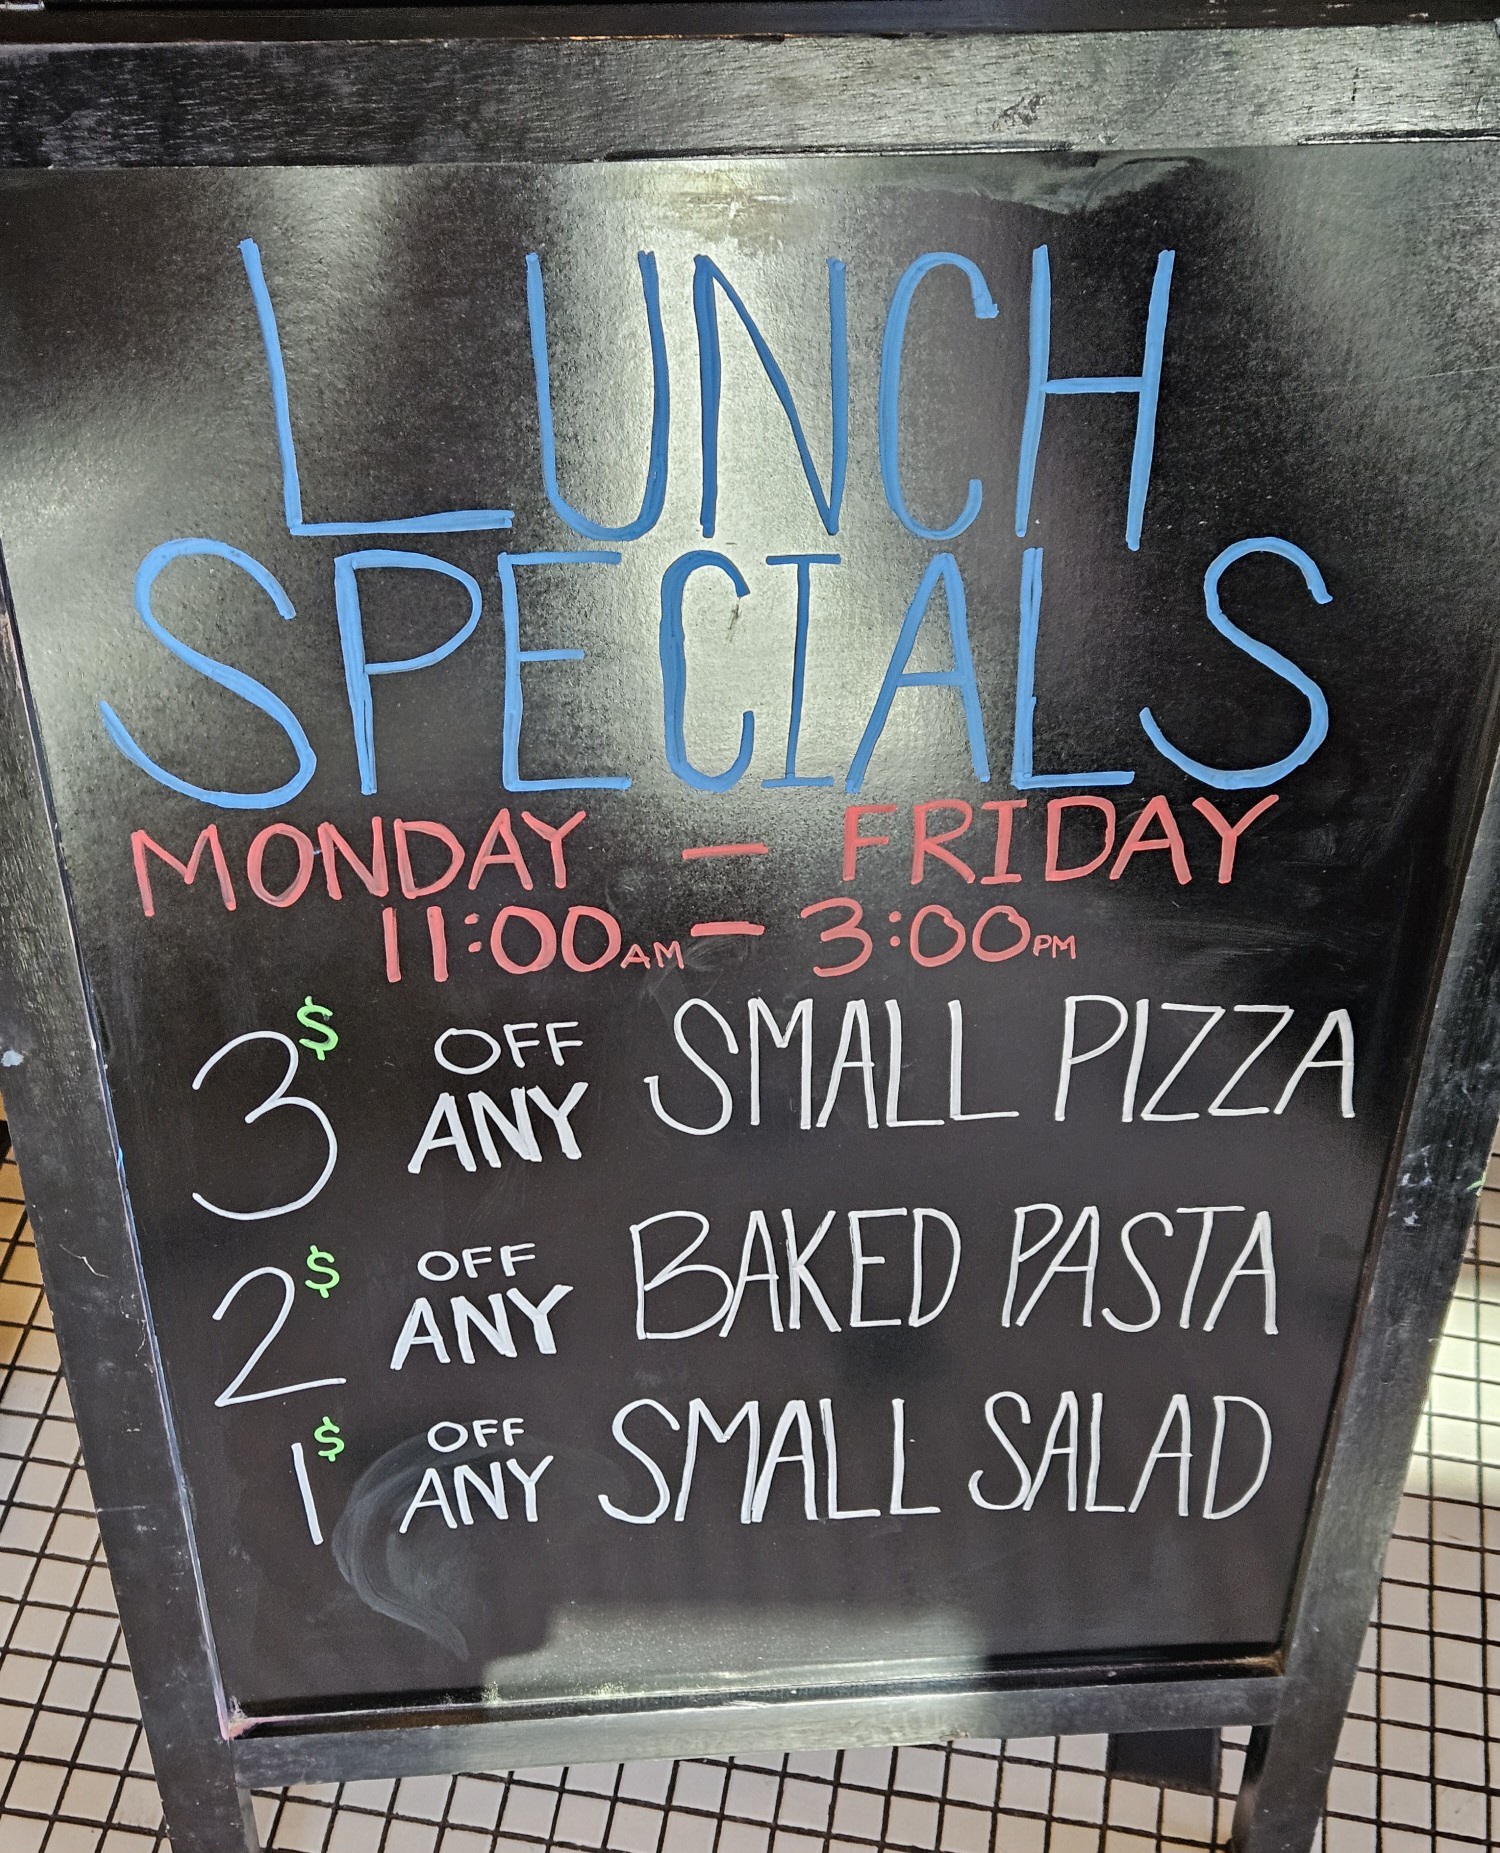 LUNCH
SPECIALS
MONDAY — FRIDAY
11:00AM — 3:00PM
3$ OFF ANY SMALL PIZZA
2$ OFF ANY BAKED PASTA
1$ OFF ANY SMALL SALAD